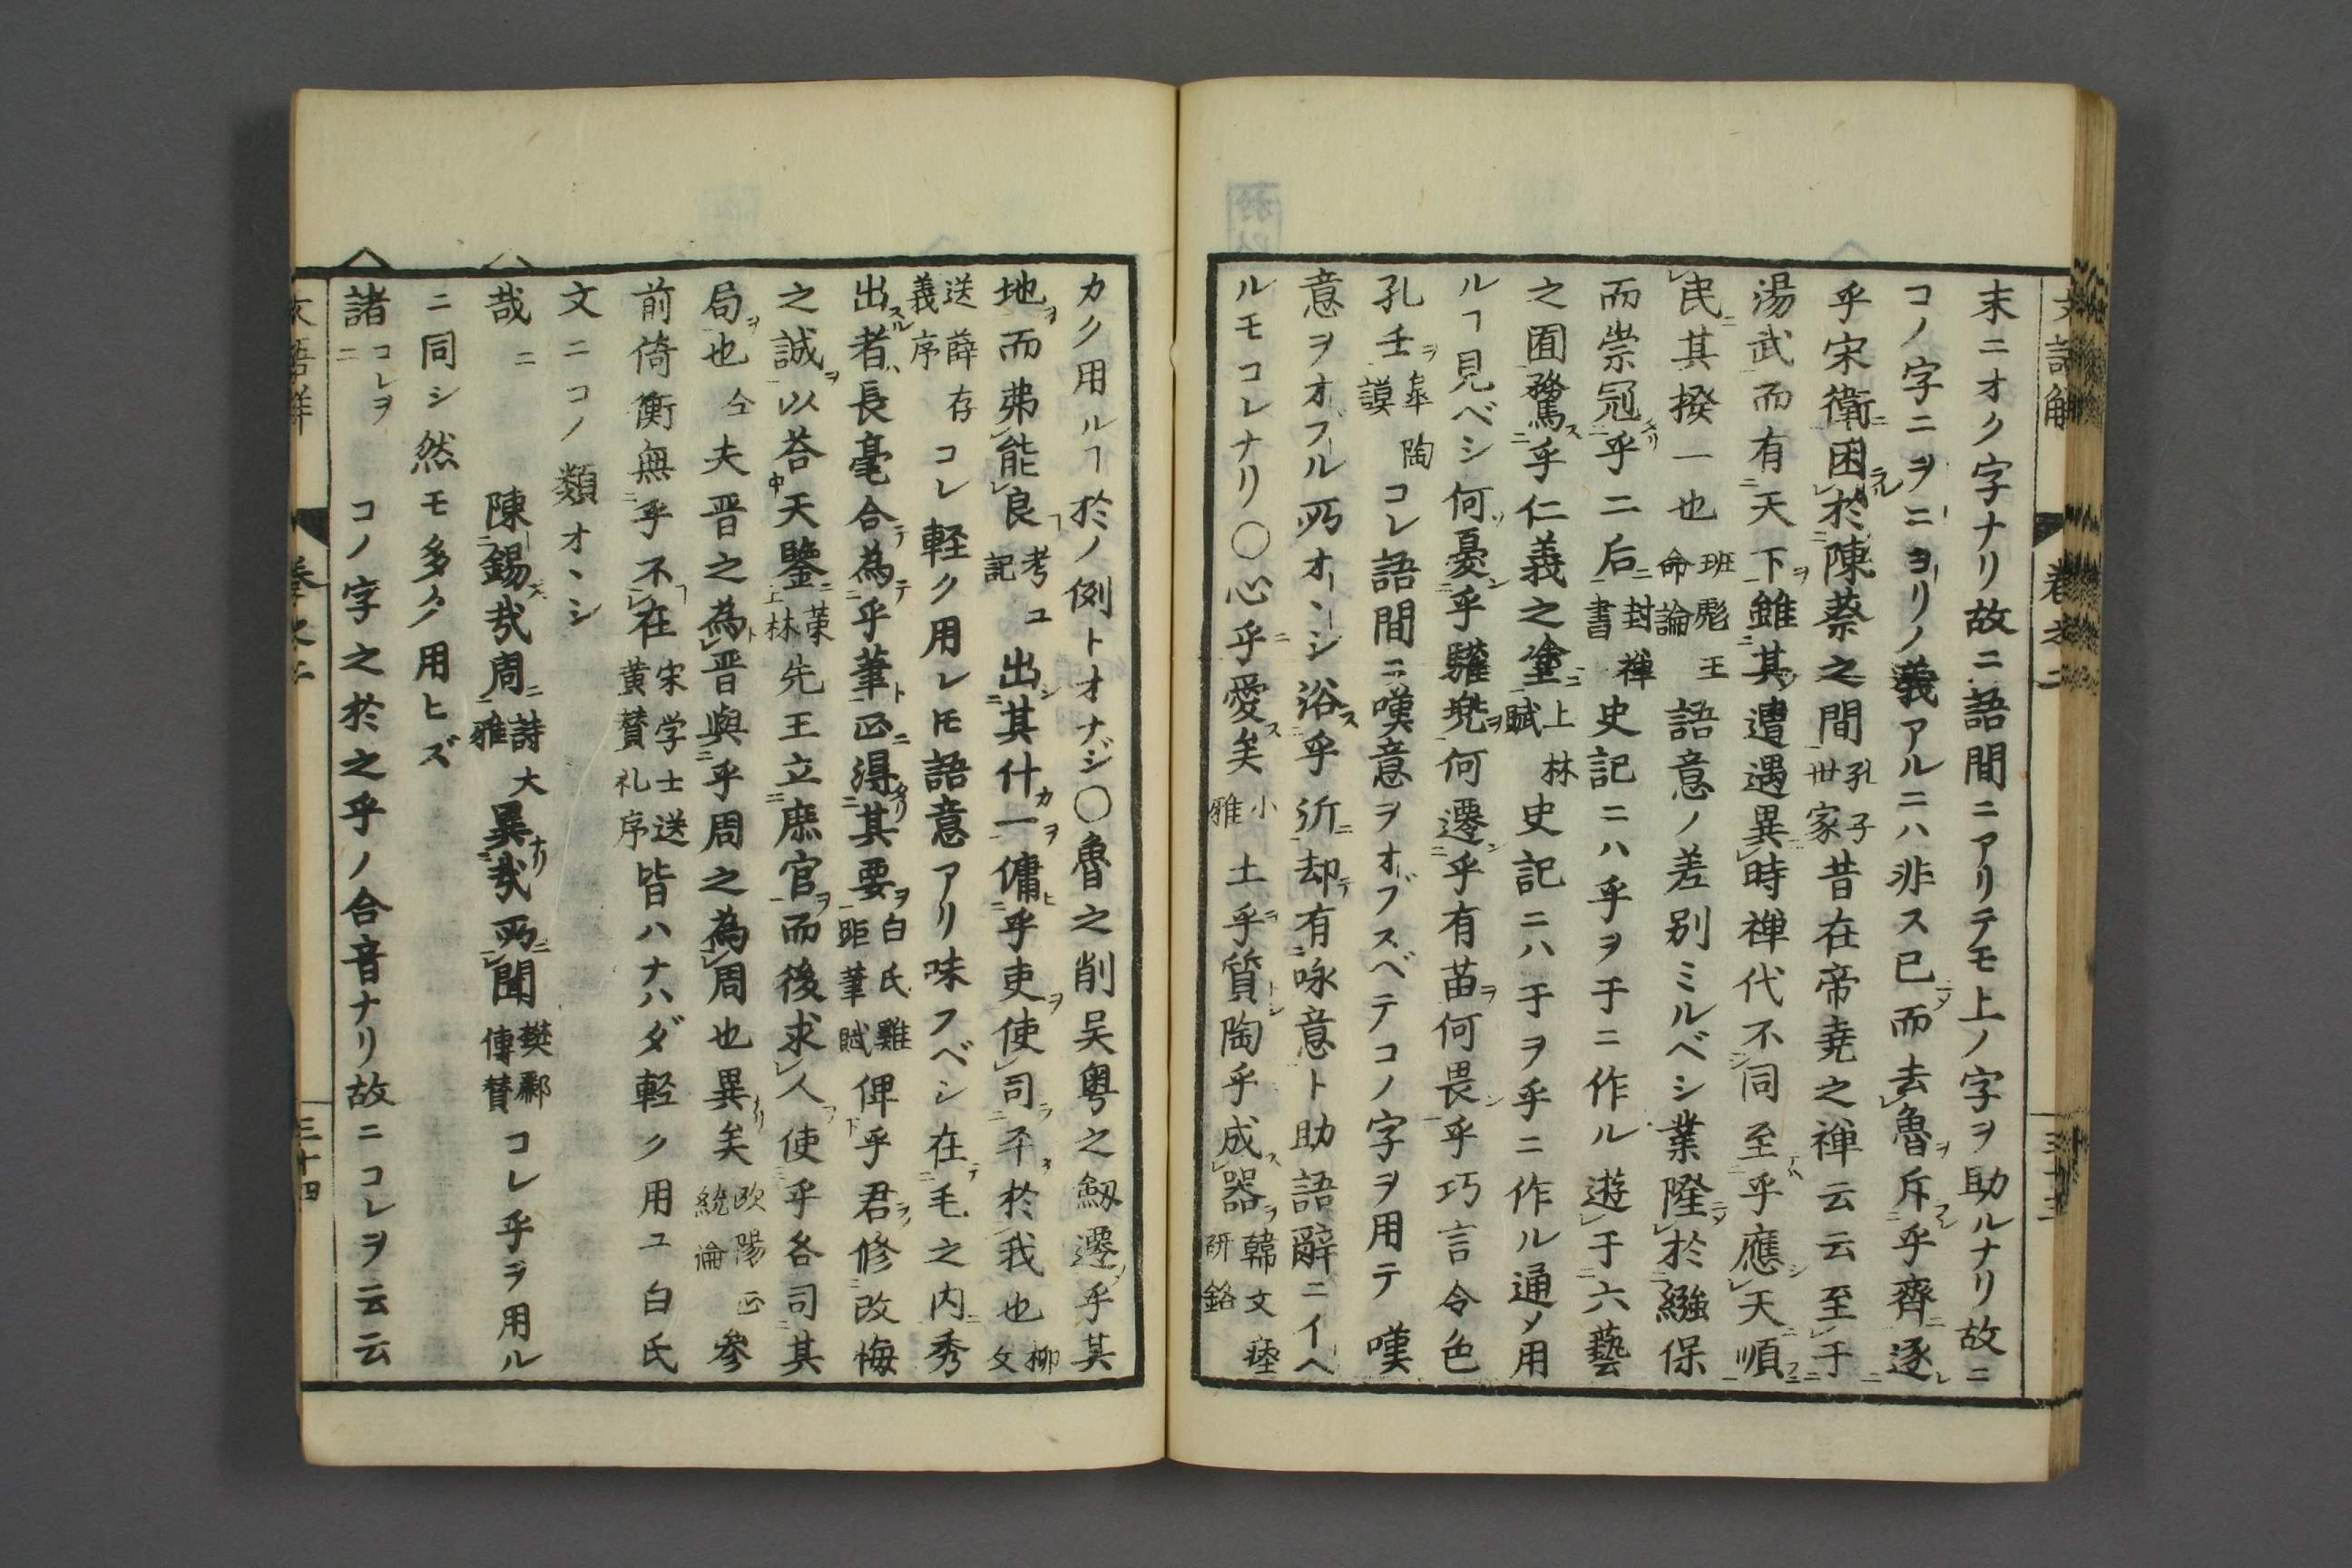 末ニオク字ナリ故ニ語間ニアリテモ上ノ字ヲ助ルナリ故ニ
コノ字ニヲニヨリノ義アルニハ非ス已而去魯斥乎齊逐
乎宋衛困於陳蔡之間孔子世家昔在帝堯之禅云云至于
湯武而有天下雖其遭遇異時禅代不同至乎應天順
民其揆一也班彪王命論語意ノ差別ミルベシ業隆於繦保
而崇冠乎二后封禅書史記ニハ乎ヲ于ニ作ル遊于六藝
之囿騖乎仁義之塗上林賦史記ニハ于ヲ乎ニ作ル通メ用
ルヿ見ベシ何憂乎驩兜何遷乎有苗何畏乎巧言令色
孔壬皐陶謨コレ語間ニ嘆意ヲオブスベテコノ字ヲ用テ嘆
意ヲオブル所オヽシ浴乎近却有咏意ト助語辭ニイヘ
ルモコレナリ○心乎愛矣小雅土乎質陶乎成器韓文瘞硏銘
カク用ルヿ於ノ例トオナジ○魯之削吴粤之劒遷乎其
地而弗能良考記ユ出其什一傭乎吏使司平於我也柳文
送薛存義序コレ軽ク用レ𪜈語意アリ味フベシ在毛之内秀
出者長毫合為乎筆正得其要白氏雞距筆賦俾乎君修改悔
之誠以荅天鑒上林菓先王立庶官而後求人使乎各司其
局也仝夫晋之為晋與乎周之為周也異矣欧陽正統論參
前倚衡無乎不在宋学士送黄賛礼序皆ハナハダ軽ク用ユ白氏
文ニコノ類オヽシ
哉ニ陳錫哉周詩大雅異哉所聞樊酈傳賛コレ乎ヲ用ル
ニ同シ然モ多ク用ヒズ
諸コレヲニコノ字之於之乎ノ合音ナリ故ニコレヲ云云
文語解
卷之二
三十四